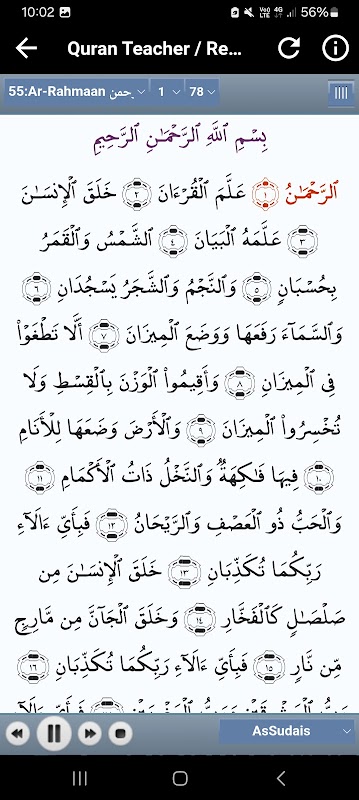 10:02
56%
Quran Teacher / Re...
55:Ar-Rahmaan 1 78
بِسْمِ ٱللَّهِ ٱلرَّحْمَـٰنِ ٱلرَّحِيمِ
ٱلرَّحْمَـٰنُ ١ عَلَّمَ ٱلْقُرْءَانَ ٢ خَلَقَ ٱلْإِنسَـٰنَ
٣ عَلَّمَهُ ٱلْبَيَانَ ٤ ٱلشَّمْسُ وَٱلْقَمَرُ
بِحُسْبَانٍ ٥ وَٱلنَّجْمُ وَٱلشَّجَرُ يَسْجُدَانِ ٦
وَٱلسَّمَآءَ رَفَعَهَا وَوَضَعَ ٱلْمِيزَانَ ٧ أَلَّا تَطْغَوْا۟
فِى ٱلْمِيزَانِ ٨ وَأَقِيمُوا۟ ٱلْوَزْنَ بِٱلْقِسْطِ وَلَا
تُخْسِرُوا۟ ٱلْمِيزَانَ ٩ وَٱلْأَرْضَ وَضَعَهَا لِلْأَنَامِ
١٠ فِيهَا فَـٰكِهَةٌ وَٱلنَّخْلُ ذَاتُ ٱلْأَكْمَامِ ١١
وَٱلْحَبُّ ذُو ٱلْعَصْفِ وَٱلرَّيْحَانُ ١٢ فَبِأَىِّ ءَالَآءِ
رَبِّكُمَا تُكَذِّبَانِ ١٣ خَلَقَ ٱلْإِنسَـٰنَ مِن
صَلْصَـٰلٍ كَٱلْفَخَّارِ ١٤ وَخَلَقَ ٱلْجَآنَّ مِن مَّارِجٍ
مِّن نَّارٍ ١٥ فَبِأَىِّ ءَالَآءِ رَبِّكُمَا تُكَذِّبَانِ ١٦
AsSudais